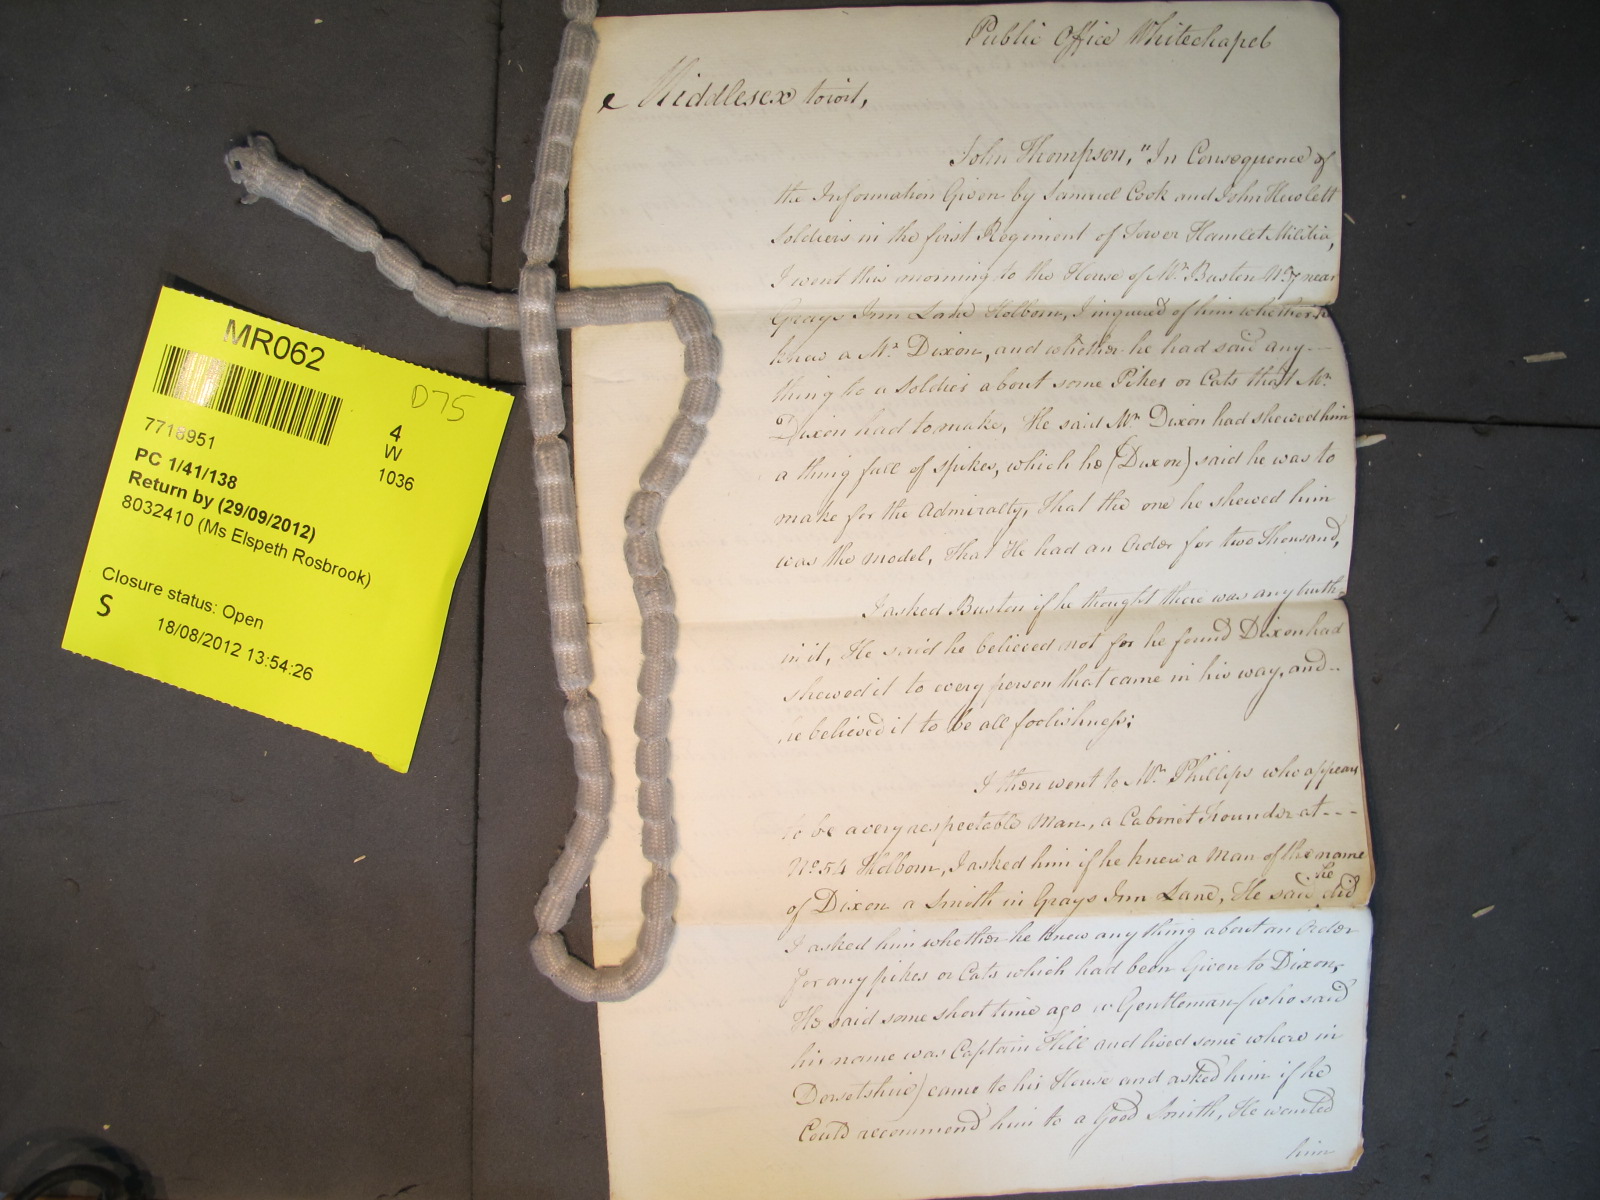 MR062
D75
7718951
4
W
1036
PC 1/41/138
Return by (29/09/2012)
8032410 (Ms Elspeth Rosbrook)
Closure status: Open
S
18/08/2012 13:54:26
Public Office Whitechapel
Middlesex towit,
John Thompson, "In Consequence of
the Information Given by Samuel Cook and John Hewlett
Soldiers in the first Regiment of Tower Hamlet Militia,
I went this morning to the House of Mr. Buston No. 37 near
Grays Inn Lane Holborn, I inquired of him whether he
knew a Mr. Dixon, and whether he had said any--
thing to a Soldier about some Pikes or Cats that Mr.
Dixon had to make, He said Mr. Dixon had shewed him
a thing full of spikes, which he (Dixon) said he was to
make for the Admiralty, That the one he shewed him
was the model, That He had an Order for two Thousand,
I asked Buston if he thought there was any truth-
in it, He said he believed not for he found Dixon had
shewed it to every person that came in his way, and--
he believed it to be all foolishness;
I then went to Mr. Phillips who appears
to be a very respectable Man, a Cabinet Founder at---
No. 54 Holborn, I asked him if he knew a Man of the name
of Dixon a Smith in Grays Inn Lane, He said he did
I asked him whether he knew any thing about an Order
for any pikes or Cats which had been Given to Dixon,
He said some short time ago a Gentleman (who said
his name was Captain Hill and lived some where in
Dorsetshire) came to his House and asked him if he
Could recommend him to a Good Smith, He wanted
him